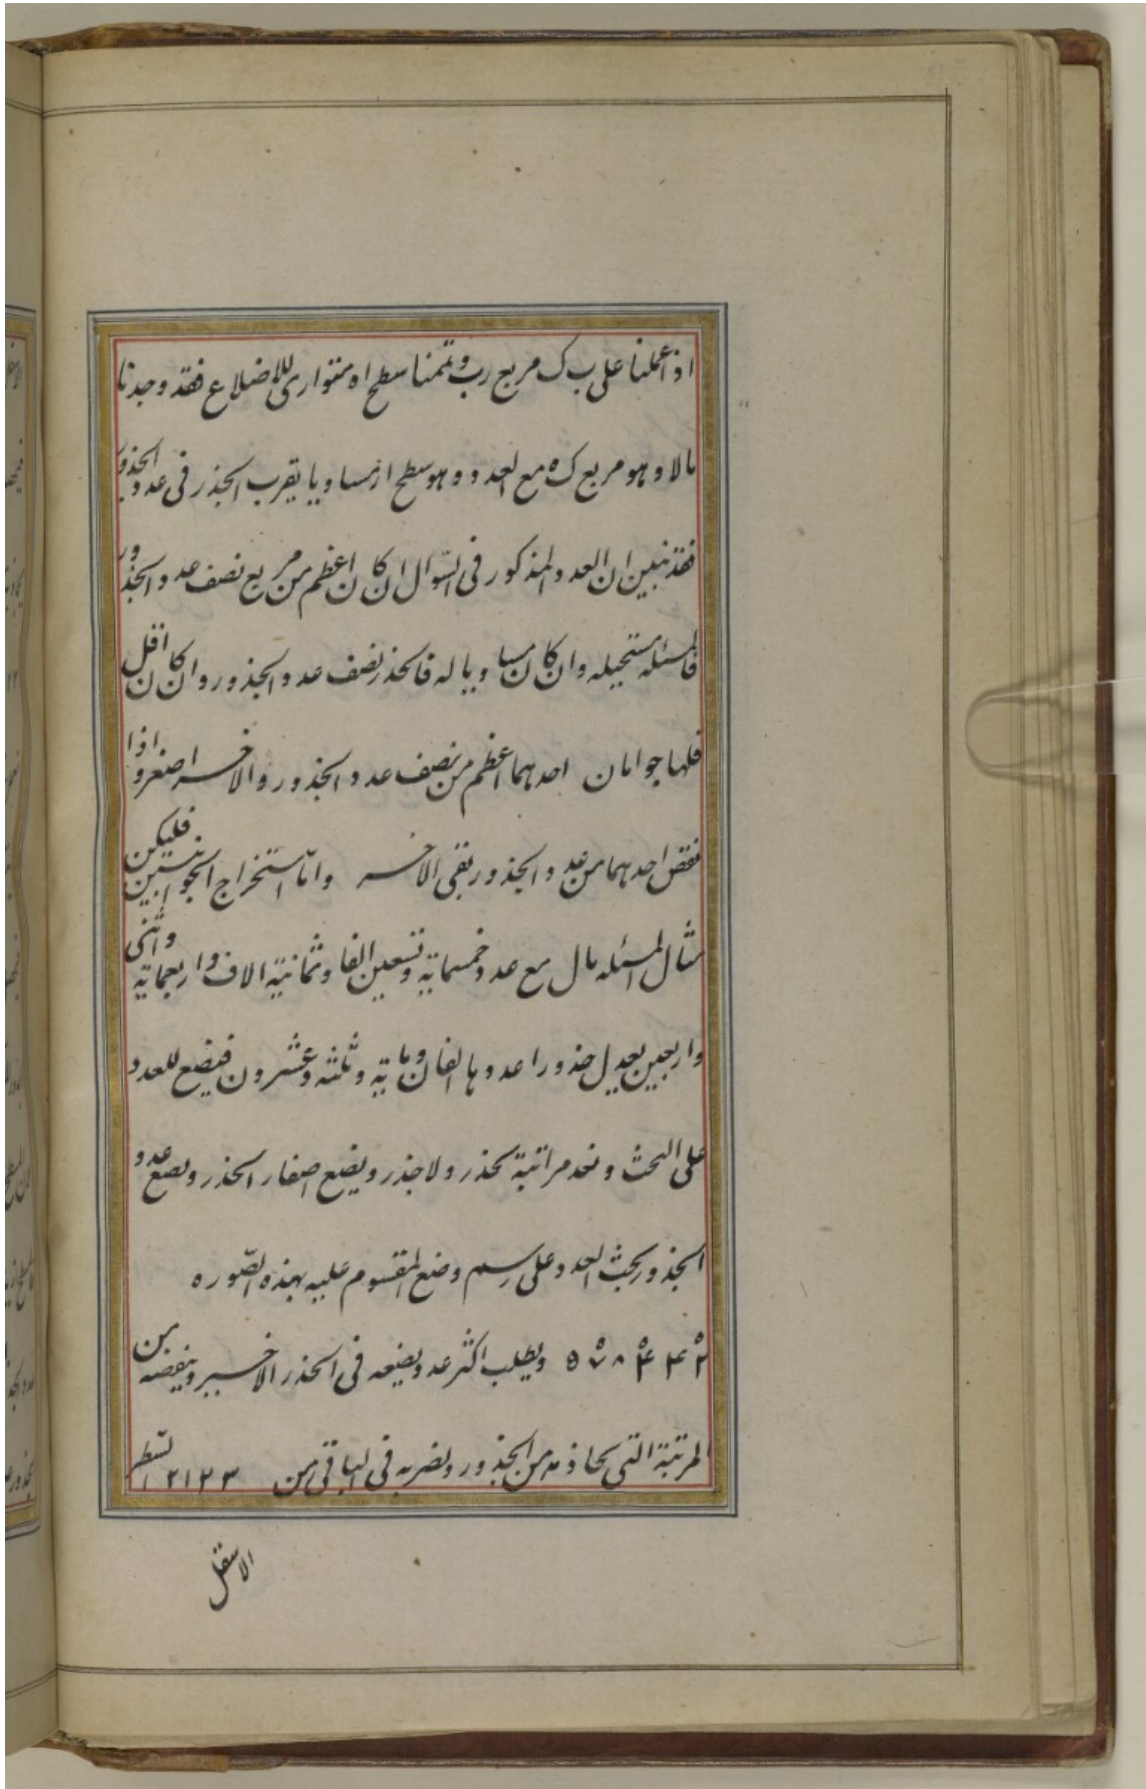 اذا عملنا على ب ك مربع رب وتممنا سطح اه متوازى للاضلاع فقد وجدنا
مالا وهو مربع ك ه مع العدد وهو سطح ار مساويا يقرب الجذر فى عدد الجذور
فقد تبين ان العدد المذكور فى السّوال ان كان اعظم من مربع نصف عدد الجذور
فالمسئله مستحيله وان كان مساويا له فالجذر نصف عدد الجذور وان كان اقل
فلها جوابان احدهما اعظم من نصف عدد الجذور والاخر اصغر واذا
نقص احدهما من عدد الجذور بقى الاخر وامّا استخراج الجوابين فليكن
مثال المسئله مال مع عدد خمسماية وتسعين الفا وثمانية الاف واربعماية واثنى
واربعين يعدل جذورا عددها الفان وماية وثلثه وعشرون فيضع للعدد
على البحث ونعد مراتبة بحذر ولا جذر ويضع اصفار الجذر ويضع عدد
الجذور بحث العدد على رسم وضع المقسوم عليه بهذه الصّوره
۵ ۹ ۸ ۴ ۴ ۲ ويطلب اكثر عدد ويضعه فى الجذر الاخير وينقصه من
المرتبة التى بحاذ من الجذور ويضربه فى الباقى من ۲۱۲۳ السّطر
الاسفل